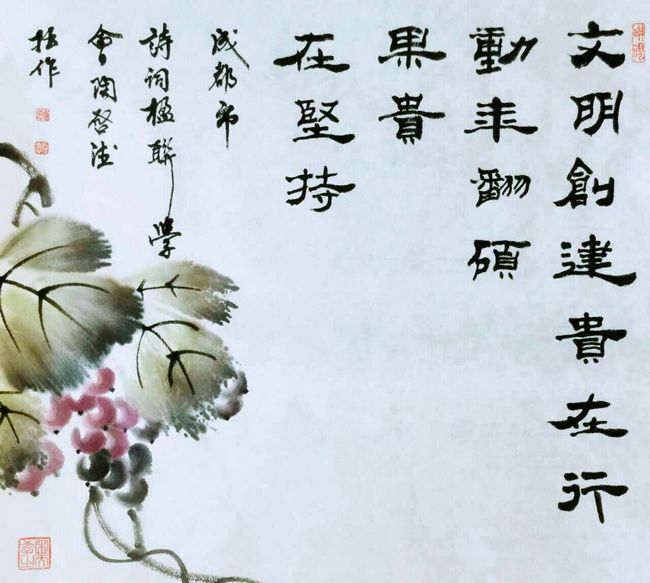 文明創建貴在行
動来翻碩
果貴
在堅持
成都市
詩詞楹聯學
會陶啓
作